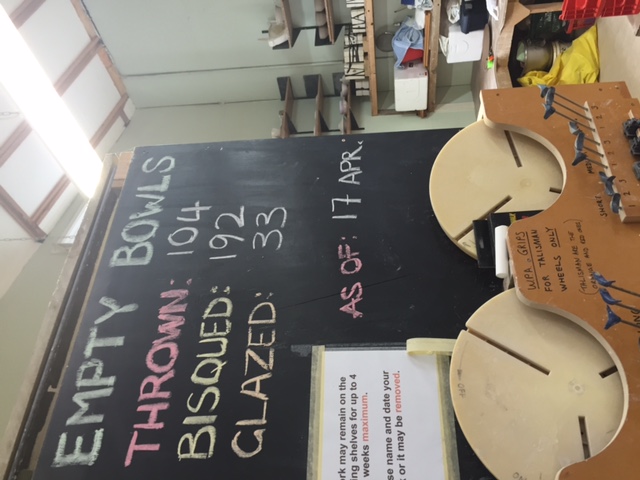 EMPTY BOWLS
THROWN: 104
BISQUED: 192
GLAZED: 33
AS OF: 17 APR:
ork may remain on the
ing shelves for up to 4
weeks maximum.
se name and date your
or it may be removed.
WPA - GRIPS
FOR TALISMAN
WHEELS ONLY
(TALISMAN ARE THE
ORANGE AND RED ONES)
SHORT
MED
LONG